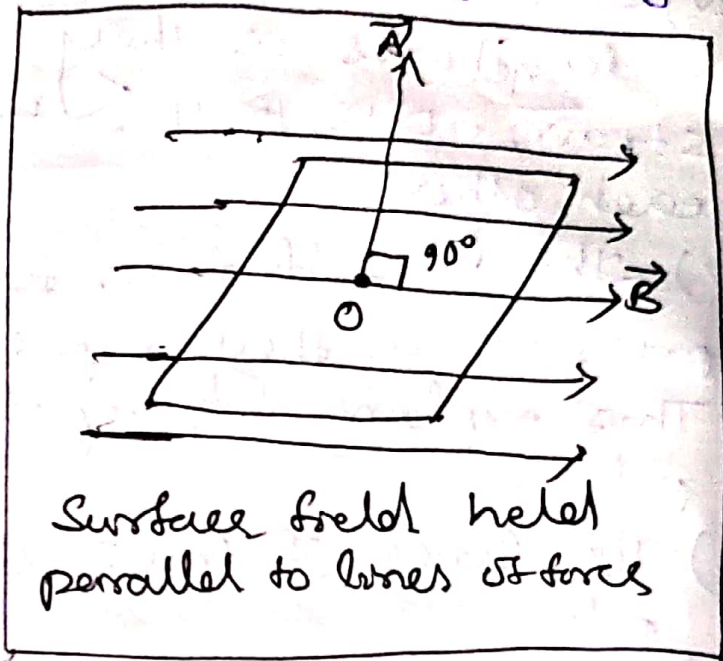 A
90°
B
O
Surface field held
parallel to lines of force